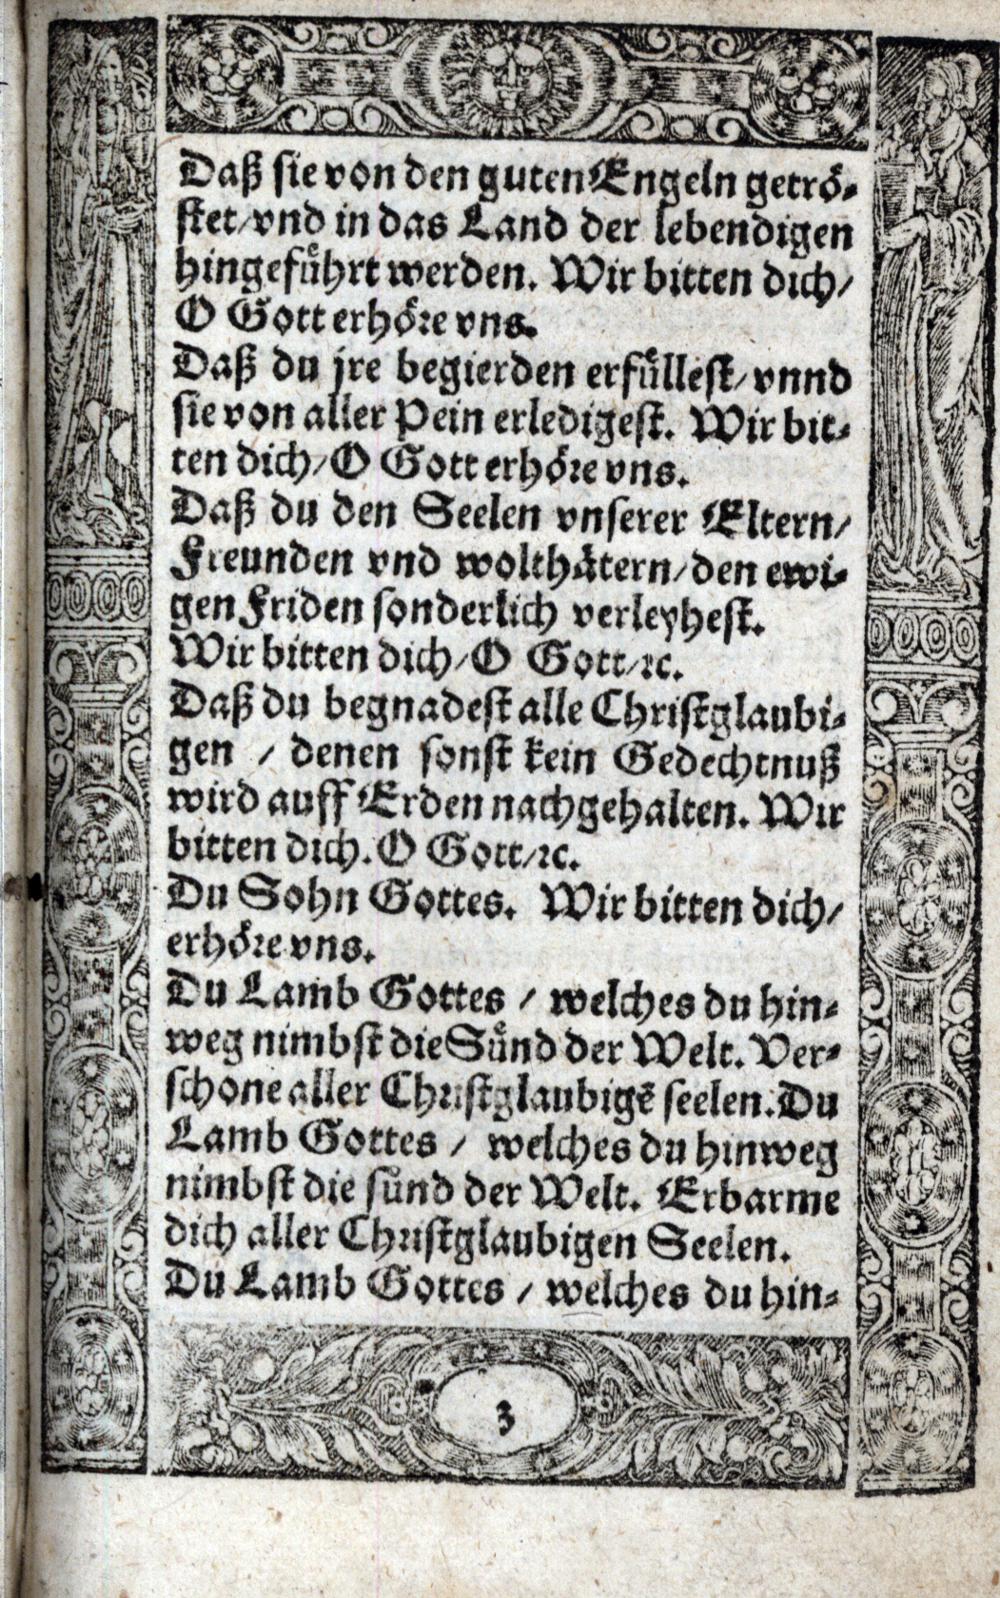 Daß sie von den guten Engeln getrö-
stet/ vnd in das Land der lebendigen
hingefuͤhrt werden. Wir bitten dich/
O Gott erhoͤre vns.
Daß du jre begierden erfuͤllest/ vnnd
sie von aller Pein erledigest. Wir bit-
ten dich/ O Gott erhoͤre vns.
Daß du den Seelen vnserer Eltern/
Freunden vnd wolthaͤtern/ den ewi-
gen Friden sonderlich verleyhest.
Wir bitten dich/ O Gott/ ꝛc.
Daß du begnadest alle Christglaubi-
gen / denen sonst kein Gedechtnuß
wird auff Erden nachgehalten. Wir
bitten dich. O Gott/ ꝛc.
Du Sohn Gottes. Wir bitten dich/
erhoͤre vns.
Du Lamb Gottes / welches du hin-
weg nimbst die Suͤnd der Welt. Ver-
schone aller Christglaubigẽ seelen. Du
Lamb Gottes / welches du hinweg
nimbst die suͤnd der Welt. Erbarme
dich aller Christglaubigen Seelen.
Du Lamb Gottes / welches du hin-
3